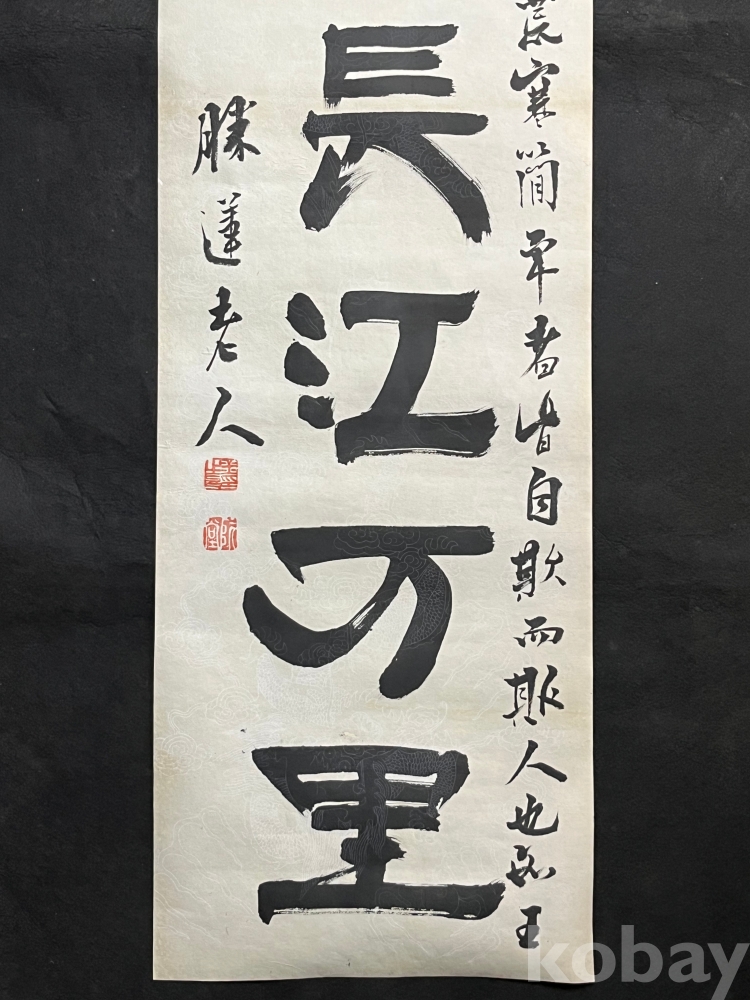 荒寒簡率者皆自欺而欺人也如王
長江万里
勝蓮老人
kobay